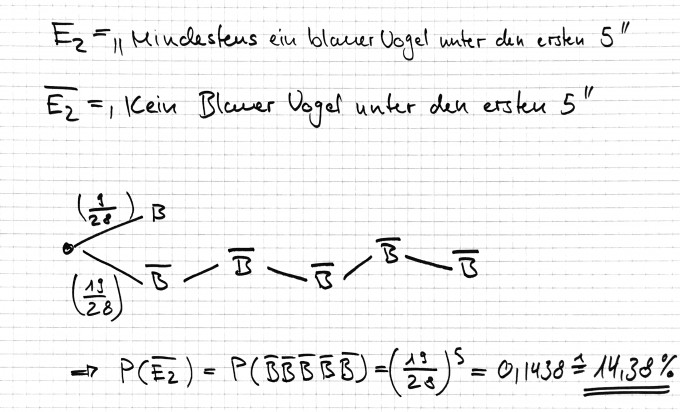 E₂ = „Mindestens ein blauer Vogel unter den ersten 5"
E̅₂ = , Kein Blauer Vogel unter den ersten 5"
(9/28) B
(19/28) B̅ B̅ B̅ B̅ B̅
⇒ P(E̅₂) = P(B̅B̅B̅B̅B̅) = (19/28)⁵ = 0,1438 ≙ 14,38%